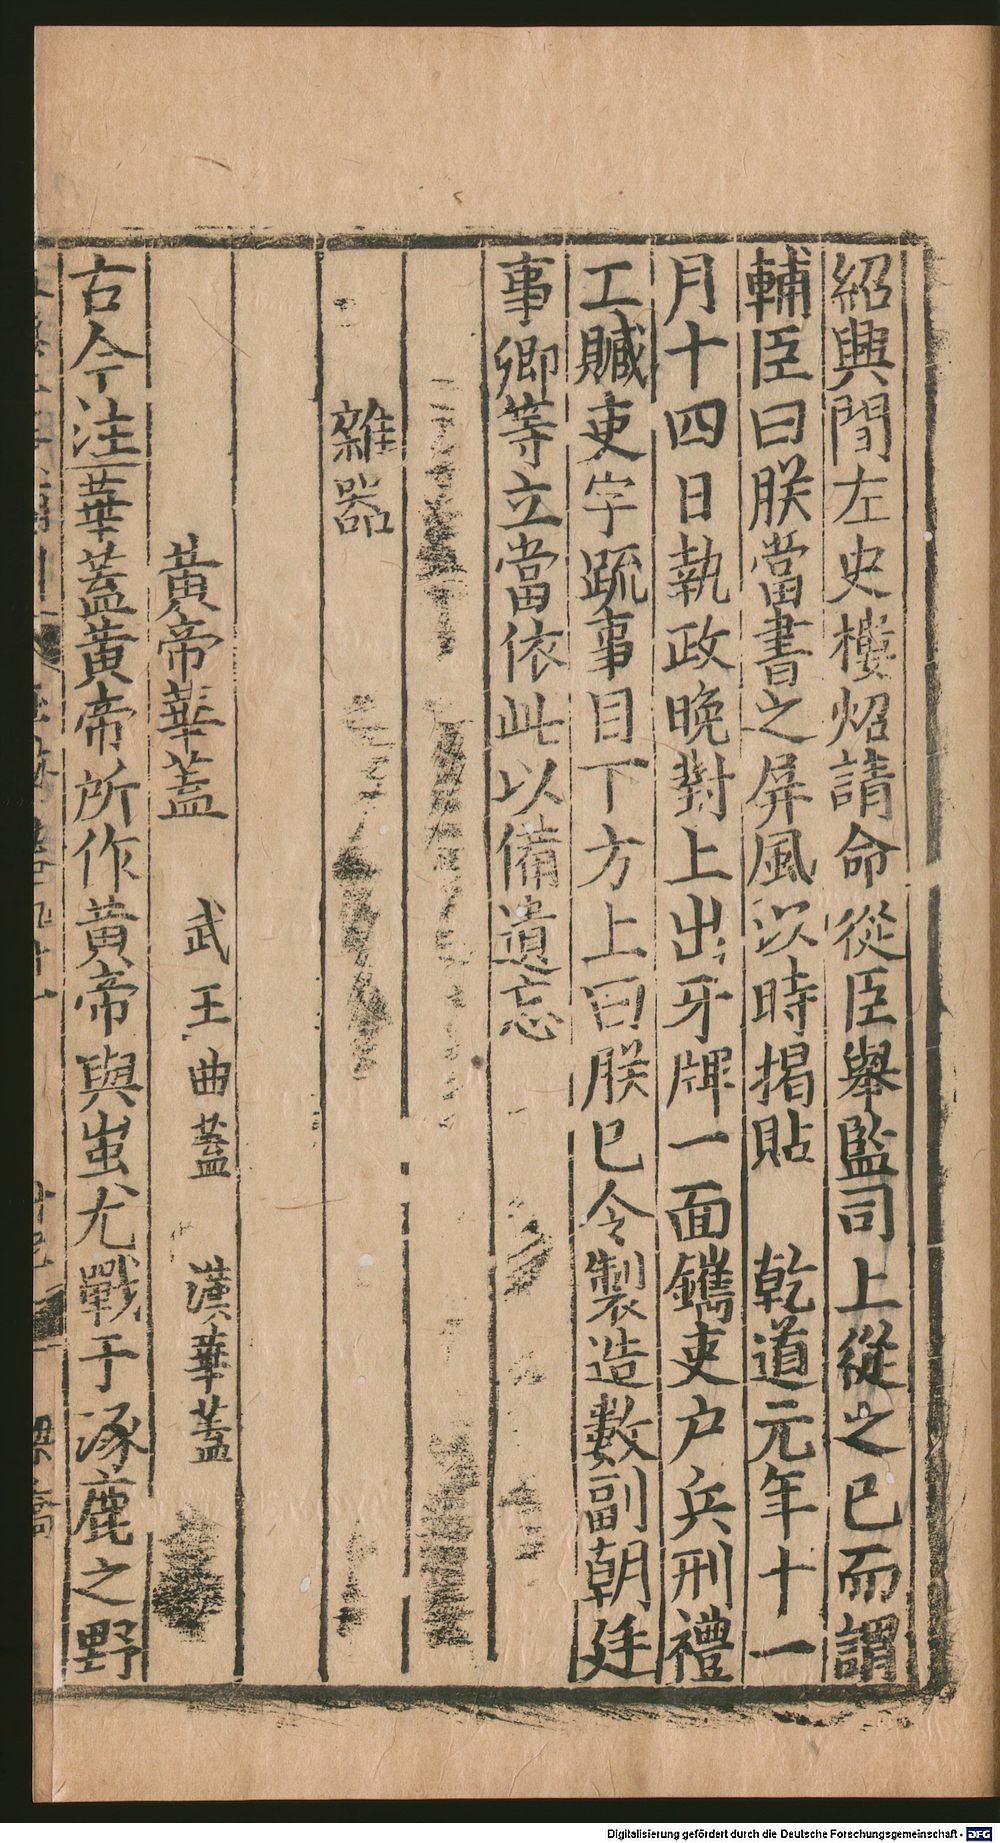 紹興間左史樓炤請命從臣舉監司上從之已而謂
輔臣曰朕當書之屏風以時揭貼　乾道元年十一
月十四日執政晚對上出牙牌一面鐫吏户兵刑禮
工贓吏字疏事目下方上曰朕已令製造數副朝廷
事卿等立當依此以備遺忘
雜器
黃帝華蓋　武王曲蓋　漢華蓋
古今注華蓋黃帝所作黃帝與蚩尤戰于涿鹿之野
Digitalisierung gefördert durch die Deutsche Forschungsgemeinschaft - DFG